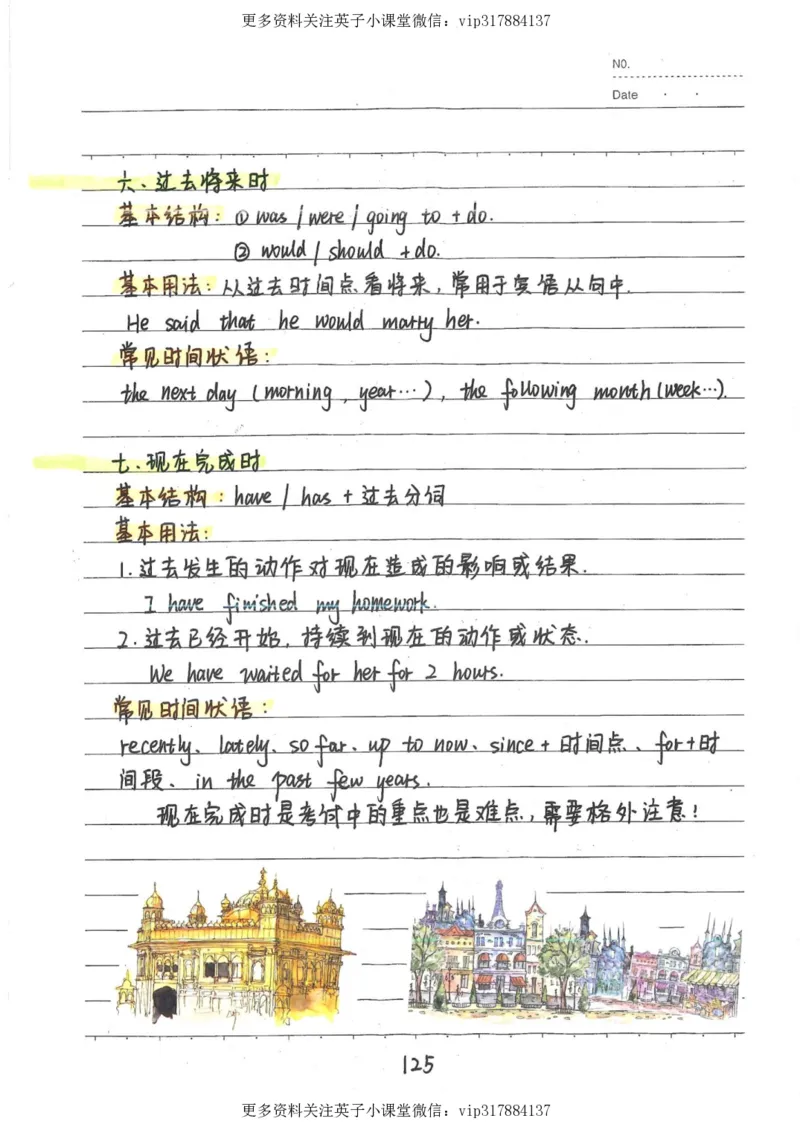 更多资料关注英子小课堂微信：vip317884137
N0.
Date · ·
六、过去将来时
基本结构：① was / were / going to + do.
② would / should + do.
基本用法：从过去时间点看将来，常用于宾语从句中.
He said that he would marry her.
常见时间状语：
the next day (morning , year…) , the following month (week…).
七、现在完成时
基本结构：have / has + 过去分词
基本用法：
1. 过去发生的动作对现在造成的影响或结果.
I have finished my homework.
2. 过去已经开始，持续到现在的动作或状态.
We have waited for her for 2 hours.
常见时间状语：
recently、lately、so far、up to now、since + 时间点、for+时
间段、in the past few years.
现在完成时是考试中的重点也是难点，需要格外注意！
125
更多资料关注英子小课堂微信：vip317884137